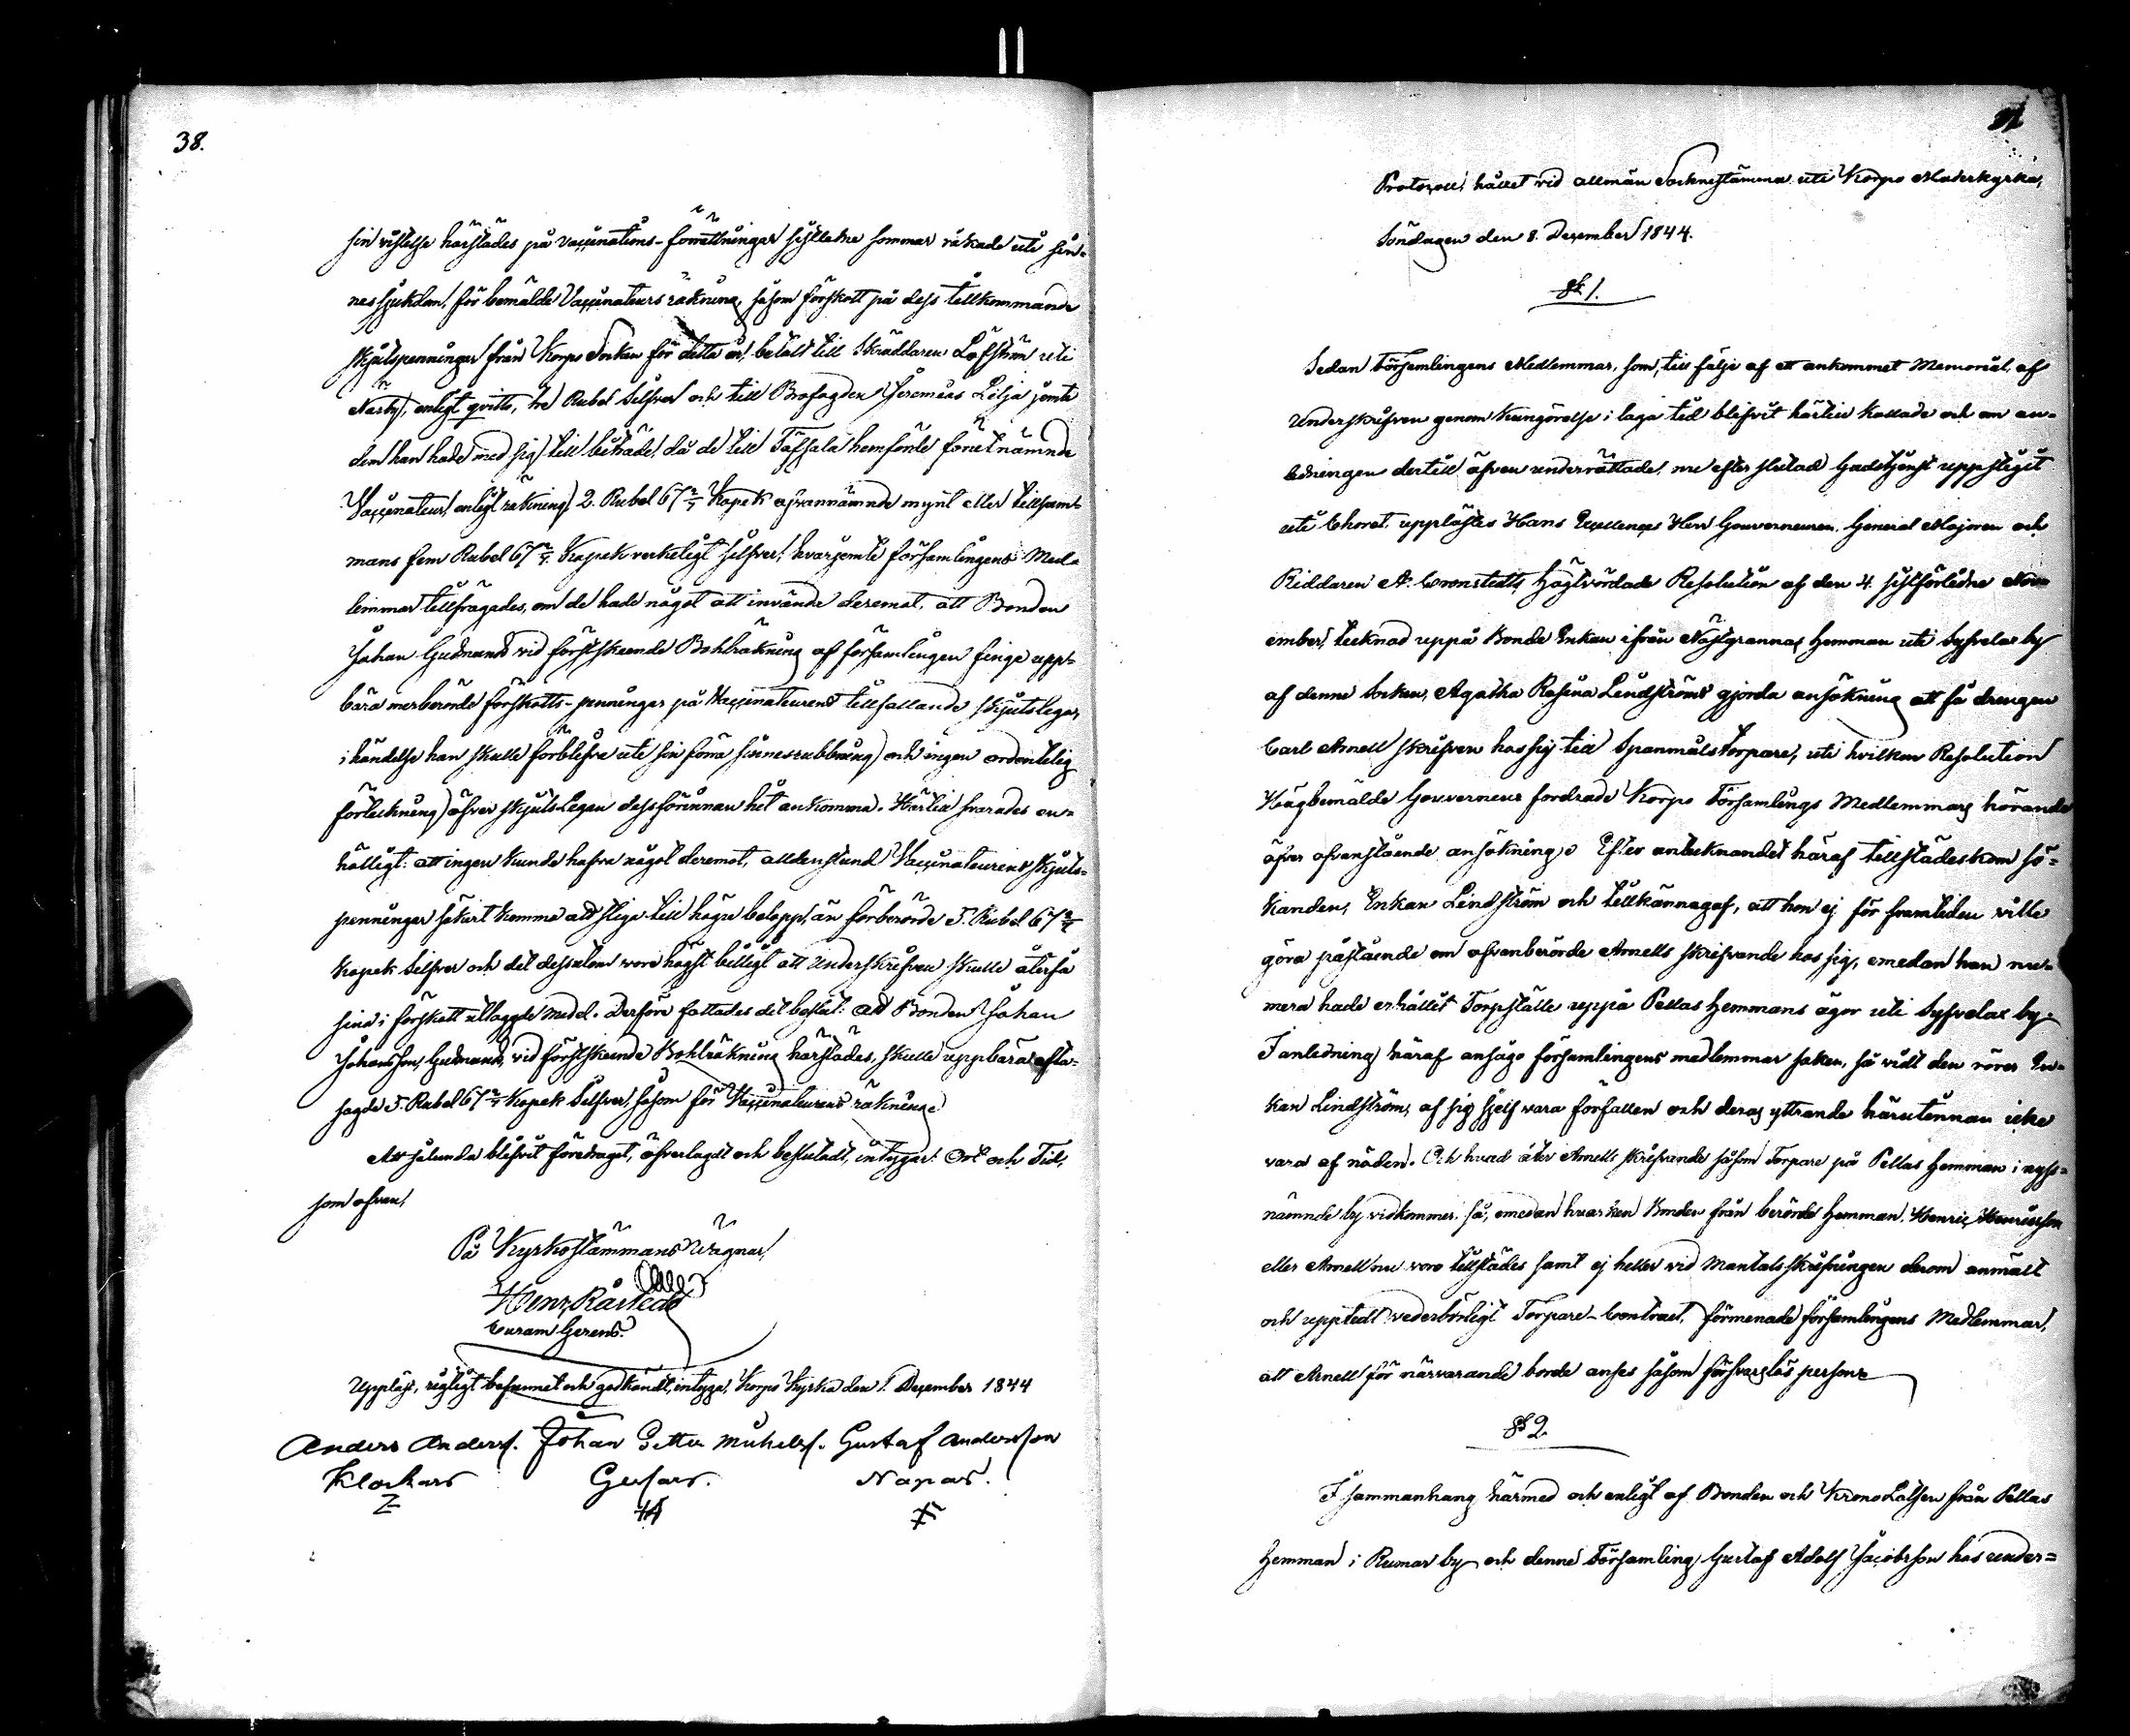 38.
sin vistelse härstädes på Vaccinations-förrättningar sistledne sommar råkade uti sin-
nessjukdom, för bemälde Vaccinateurs räkning, såsom förskott på dess tillkommande
skjutspenningar från Korpo Socken för detta år, betalt till Skräddaren Löfström uti
enligt qvitto, tre Rubel Silfver och till Brofogden Jeremias Lilja jemte
dem han hade med sig till biträde, då de till Töfsala hemförde förenämnde
Vaccinateur, enligt räkning, 2. Rubel 67 2/7 Kopek ofvannämnde mynt eller tillsam-
mans fem Rubel 67 2/7 Kopek verkeligt silfver, hvarjemte församlingens Med-
lemmar tillfrågades, om de hade något att invända deremot, att Bonden
Johan Gudmunds vid förstskeende Bohlräkning af församlingen finge upp-
bära merberörde förskotts-penningar på Vaccinateurens tillfallande skjutslega,
i händelse han skulle förblifva uti sin förra sinnesrubbning och ingen ordentelig
förteckning öfver skjuts Legan dessförinnan hit ankomma. Härtill svarades en-
hälligt: att ingen kunde hafva något deremot, alldenstund Vaccinateurens skjuts-
penningar säkert komme att stiga till högre belopp, än förberörde 5. Rubel 67 2/7
Kopek Silfver och det dessutom vore högst billigt att Underskrifven skulle återfå
sina i förskott utlaggde medel. Derföre fattades det beslut: att Bonden Johan
Johansson Gudmunds, vid förstskeende Bohlräkning härstädes, skulle uppbära ofta-
sagde 5. Rubel 67 2/7 Kopek Silfver, såsom för Vaccinateurens räkning.
Att sålunda blifvit föredraget, öfverlagdt och beslutadt, intygar: Ort och Tid,
som ofvan,
På Kyrkostämmans Vägnar,
Henr. Råstedt
Curam Gerens.
Uppläst, riktigt befunnet och godkändt, intyga, Korpo Kyrka den 1. December 1844
Anders Anderss. Johan Petter Mickelss. Gustaf Andersson
Klockars Gersars. Napas.
Protocoll, hållet vid allmän Sochnestämma uti Korpo Moderkyrka,
Söndagen den 8. December 1844.
§ 1.
Sedan Församlingens Medlemmar, som, till följe af ett ankommet Memorial, af
Underskrifven genom kungörelse i laga tid blifvit härtill kallade och om an-
ledningen dertill äfven underrättade, nu efter slutad Gudstjenst uppstigit
uti Choret, upplästes Hans Excellences Herr Gouverneuren, General Majoren och
Riddaren A. Cronstedts, Högtvördade Resolution af den 4. sistförledne Nov-
ember, tecknad uppå Bonde Enkan ifrån Nästgrannas Hemman uti Syfvelax by
af denne Socken, Agatha Rosina Lindströms gjorda ansökning att få drengen
Carl Arnell skrifven hos sig till Spanmåls Torpare, uti hvilken Resolution
Högbemälde Gouverneur fordrade Korpo Församlings Medlemmars hörande
öfver ofvanstående ansökning. Efter antecknandet häraf tillstädeskom Sö-
kanden, Enkan Lindström och tillkännagaf, att hon ej för framtiden ville
göra påstående om ofvanberörde Arnells skrifvande hos sig, emedan han nu-
mera hade erhållit Torpställe uppå Pellas Hemmans ägor uti Syfvelax by.
I anledning häraf ansågo församlingens medlemmar saken, så vidt den rörer En-
kan Lindström, af sig sjelf vara förfallen och deras yttrande härutinnan icke
vara af nöden. Och hvad åter Arnells skrifvande såsom Torpare på Pellas Hemman i nyss-
nämnde by vidkommer, så, emedan hvarken Bonden från berörde Hemman, Henric Henricsson
eller Arnell nu voro tillstädes samt ej heller vid Mantalsskrifningen derom anmält
och uppteedt vederbörligt Torpare-Contract, förmenade församlingens Medlemmar,
att Arnell för närvarande borde anses såsom försvarslös person.
§ 2.
I sammanhang härmed och enligt af Bonden och Krono Lotsen från Pellas
Hemman i Rumar by och denne Församling Gustaf Adolf Jacobsson hos under-